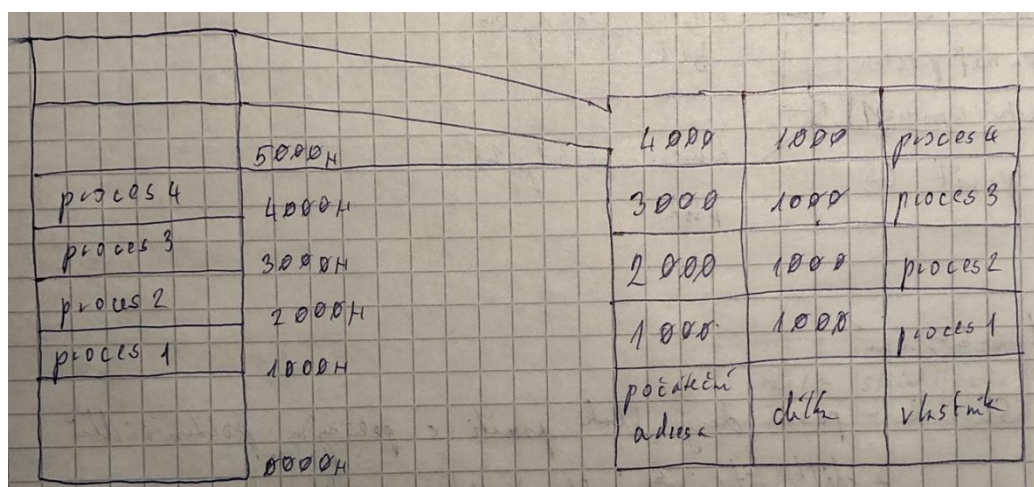 5000H
proces 4
4000H
proces 3
3000H
proces 2
2000H
proces 1
1000H
0000H
4000 1000 proces 4
3000 1000 proces 3
2000 1000 proces 2
1000 1000 proces 1
počáteční délka vlastník
adresa